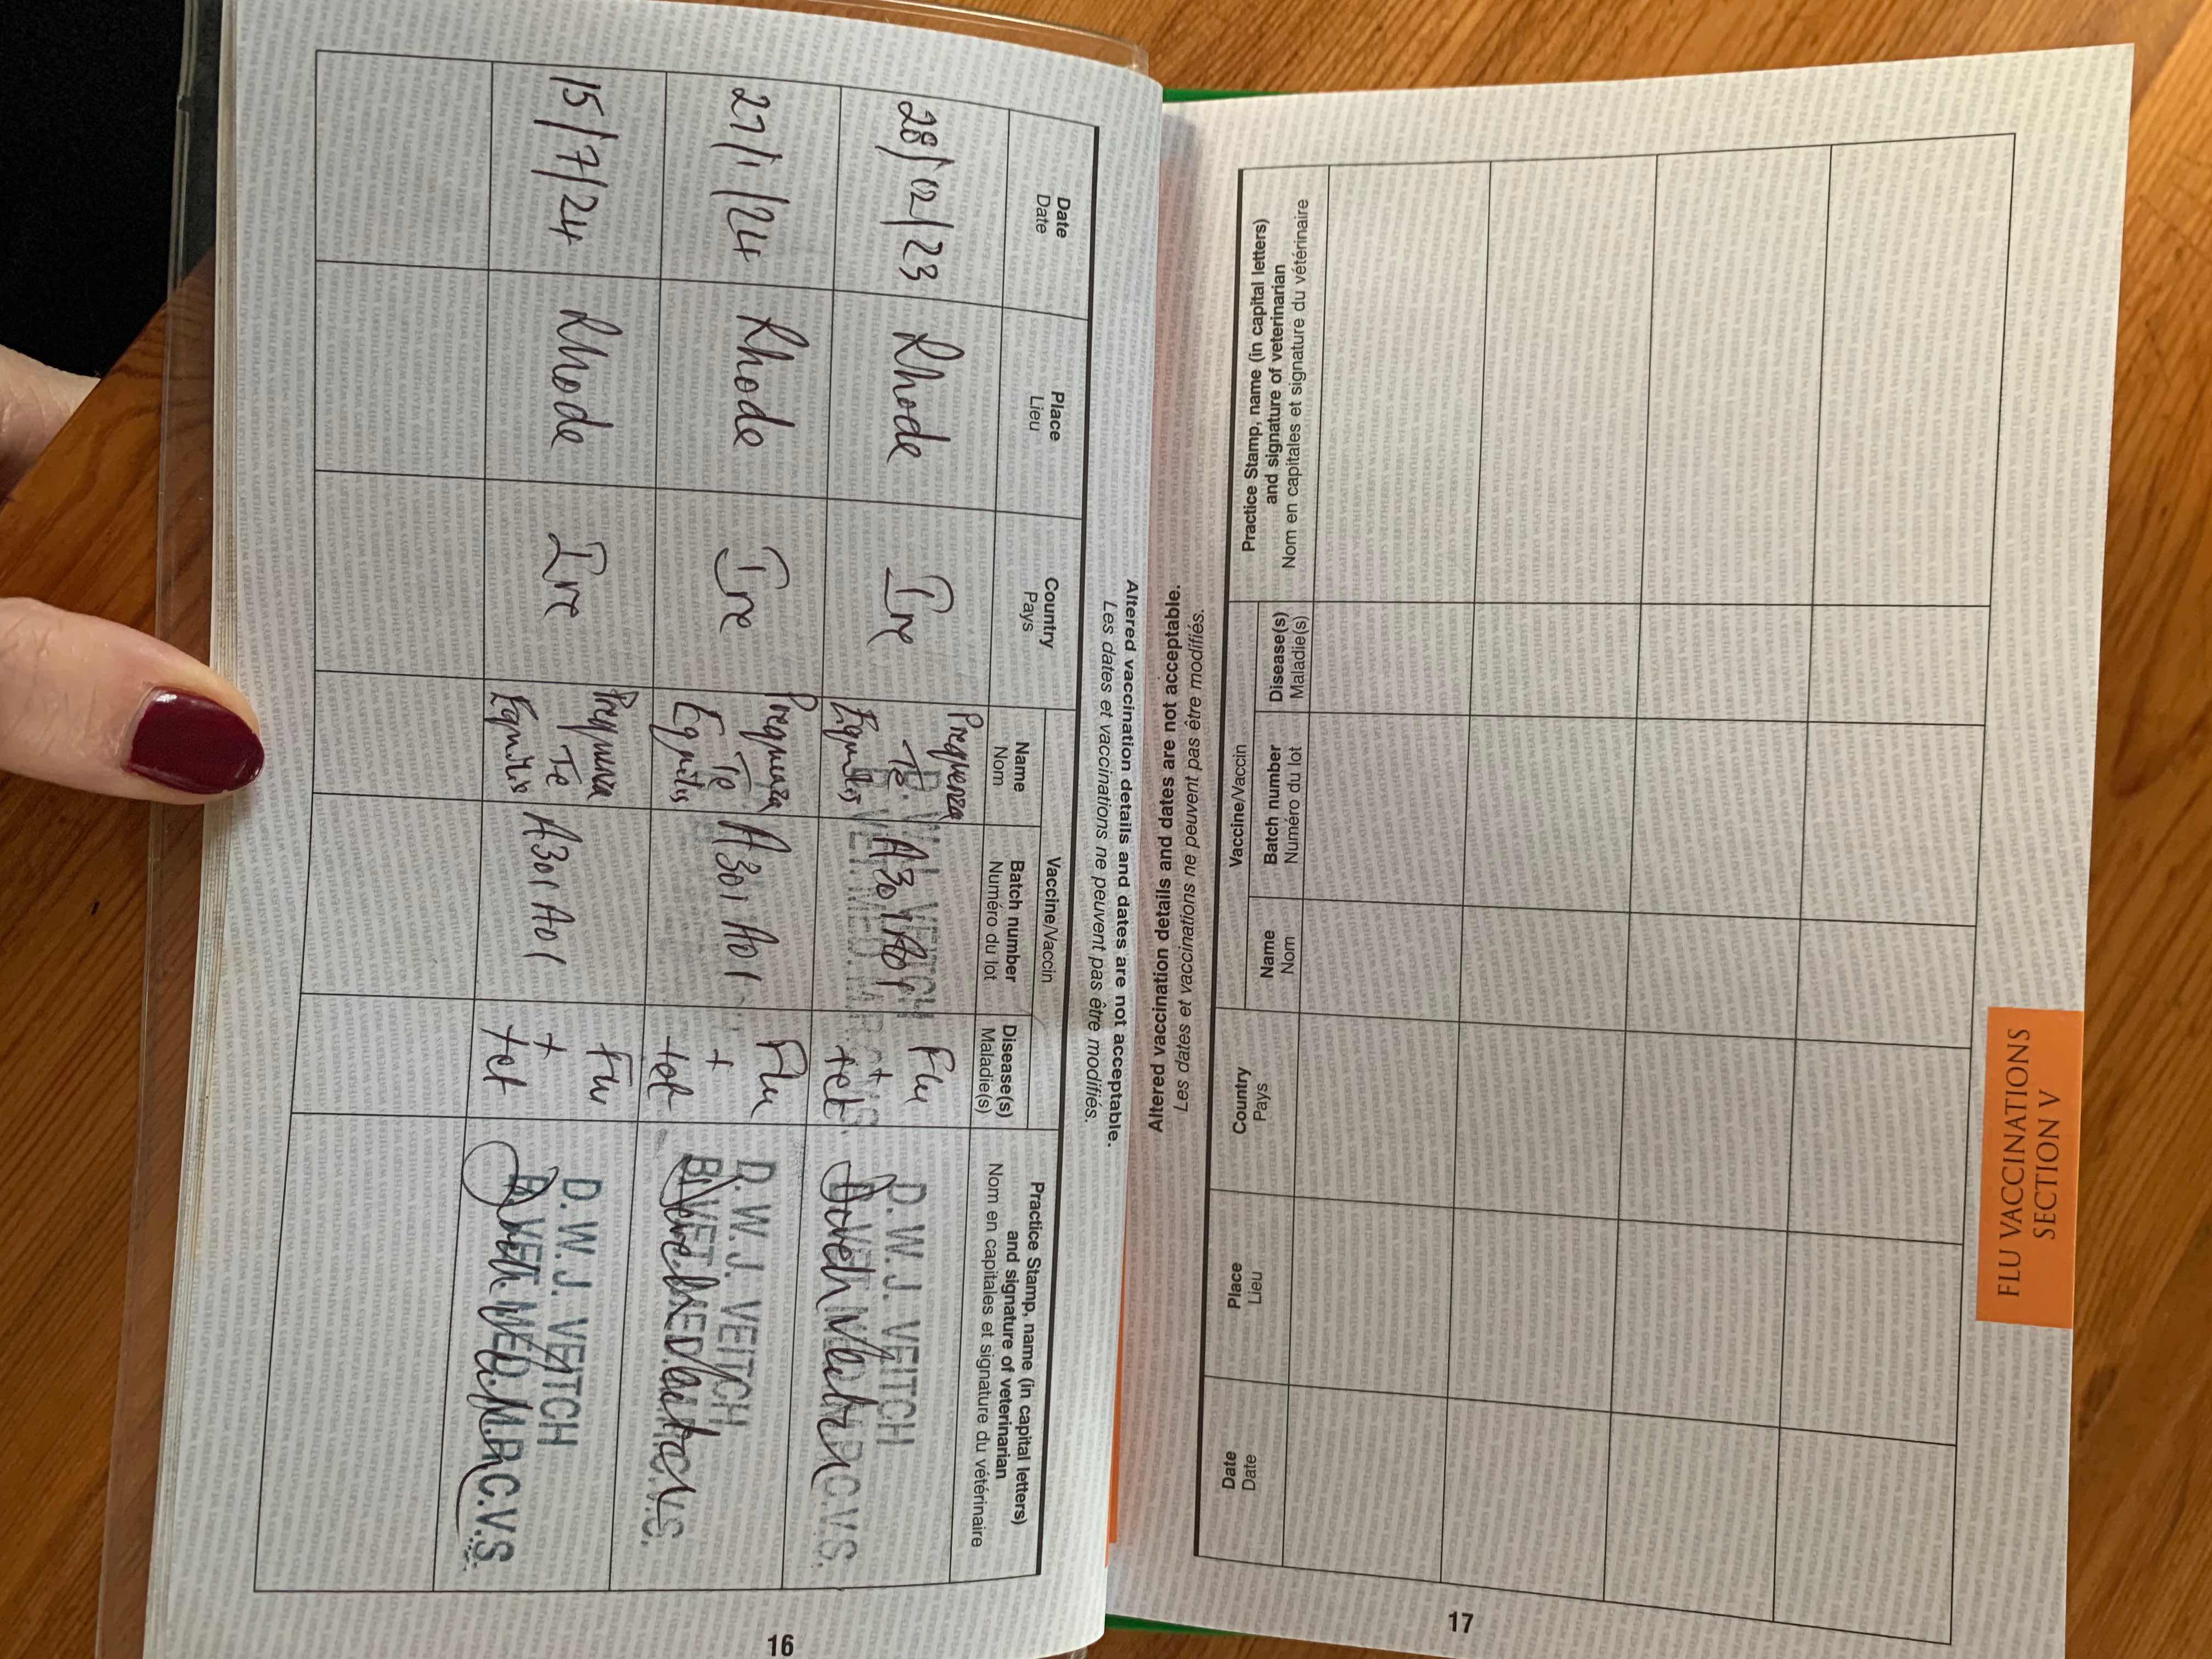 Date
Date
Place
Lieu
Country
Pays
Vaccine/Vaccin
Name
Nom
Batch number
Numéro du lot
Disease(s)
Maladie(s)
Practice Stamp, name (in capital letters)
and signature of veterinarian
Nom en capitales et signature du vétérinaire
28/12/23
Rhode
Ire
Prequenza
Te
Equilis
A301A01
Flu
+
tet
D.W.J. VEITCH
B.VET.MED.M.R.C.V.S.
27/1/24
Rhode
Ire
Prequenza
Te
Equilis
A301A01
Flu
+
tet
D.W.J. VEITCH
B.VET.MED.M.R.C.V.S.
15/7/24
Rhode
Ire
Prequenza
Te
Equilis
A301A01
Flu
+
tet
D.W.J. VEITCH
B.VET.MED.M.R.C.V.S.
16
Altered vaccination details and dates are not acceptable.
Les dates et vaccinations ne peuvent pas être modifiés.
Altered vaccination details and dates are not acceptable.
Les dates et vaccinations ne peuvent pas être modifiés.
FLU VACCINATIONS
SECTION V
Date
Date
Place
Lieu
Country
Pays
Vaccine/Vaccin
Name
Nom
Batch number
Numéro du lot
Disease(s)
Maladie(s)
Practice Stamp, name (in capital letters)
and signature of veterinarian
Nom en capitales et signature du vétérinaire
17